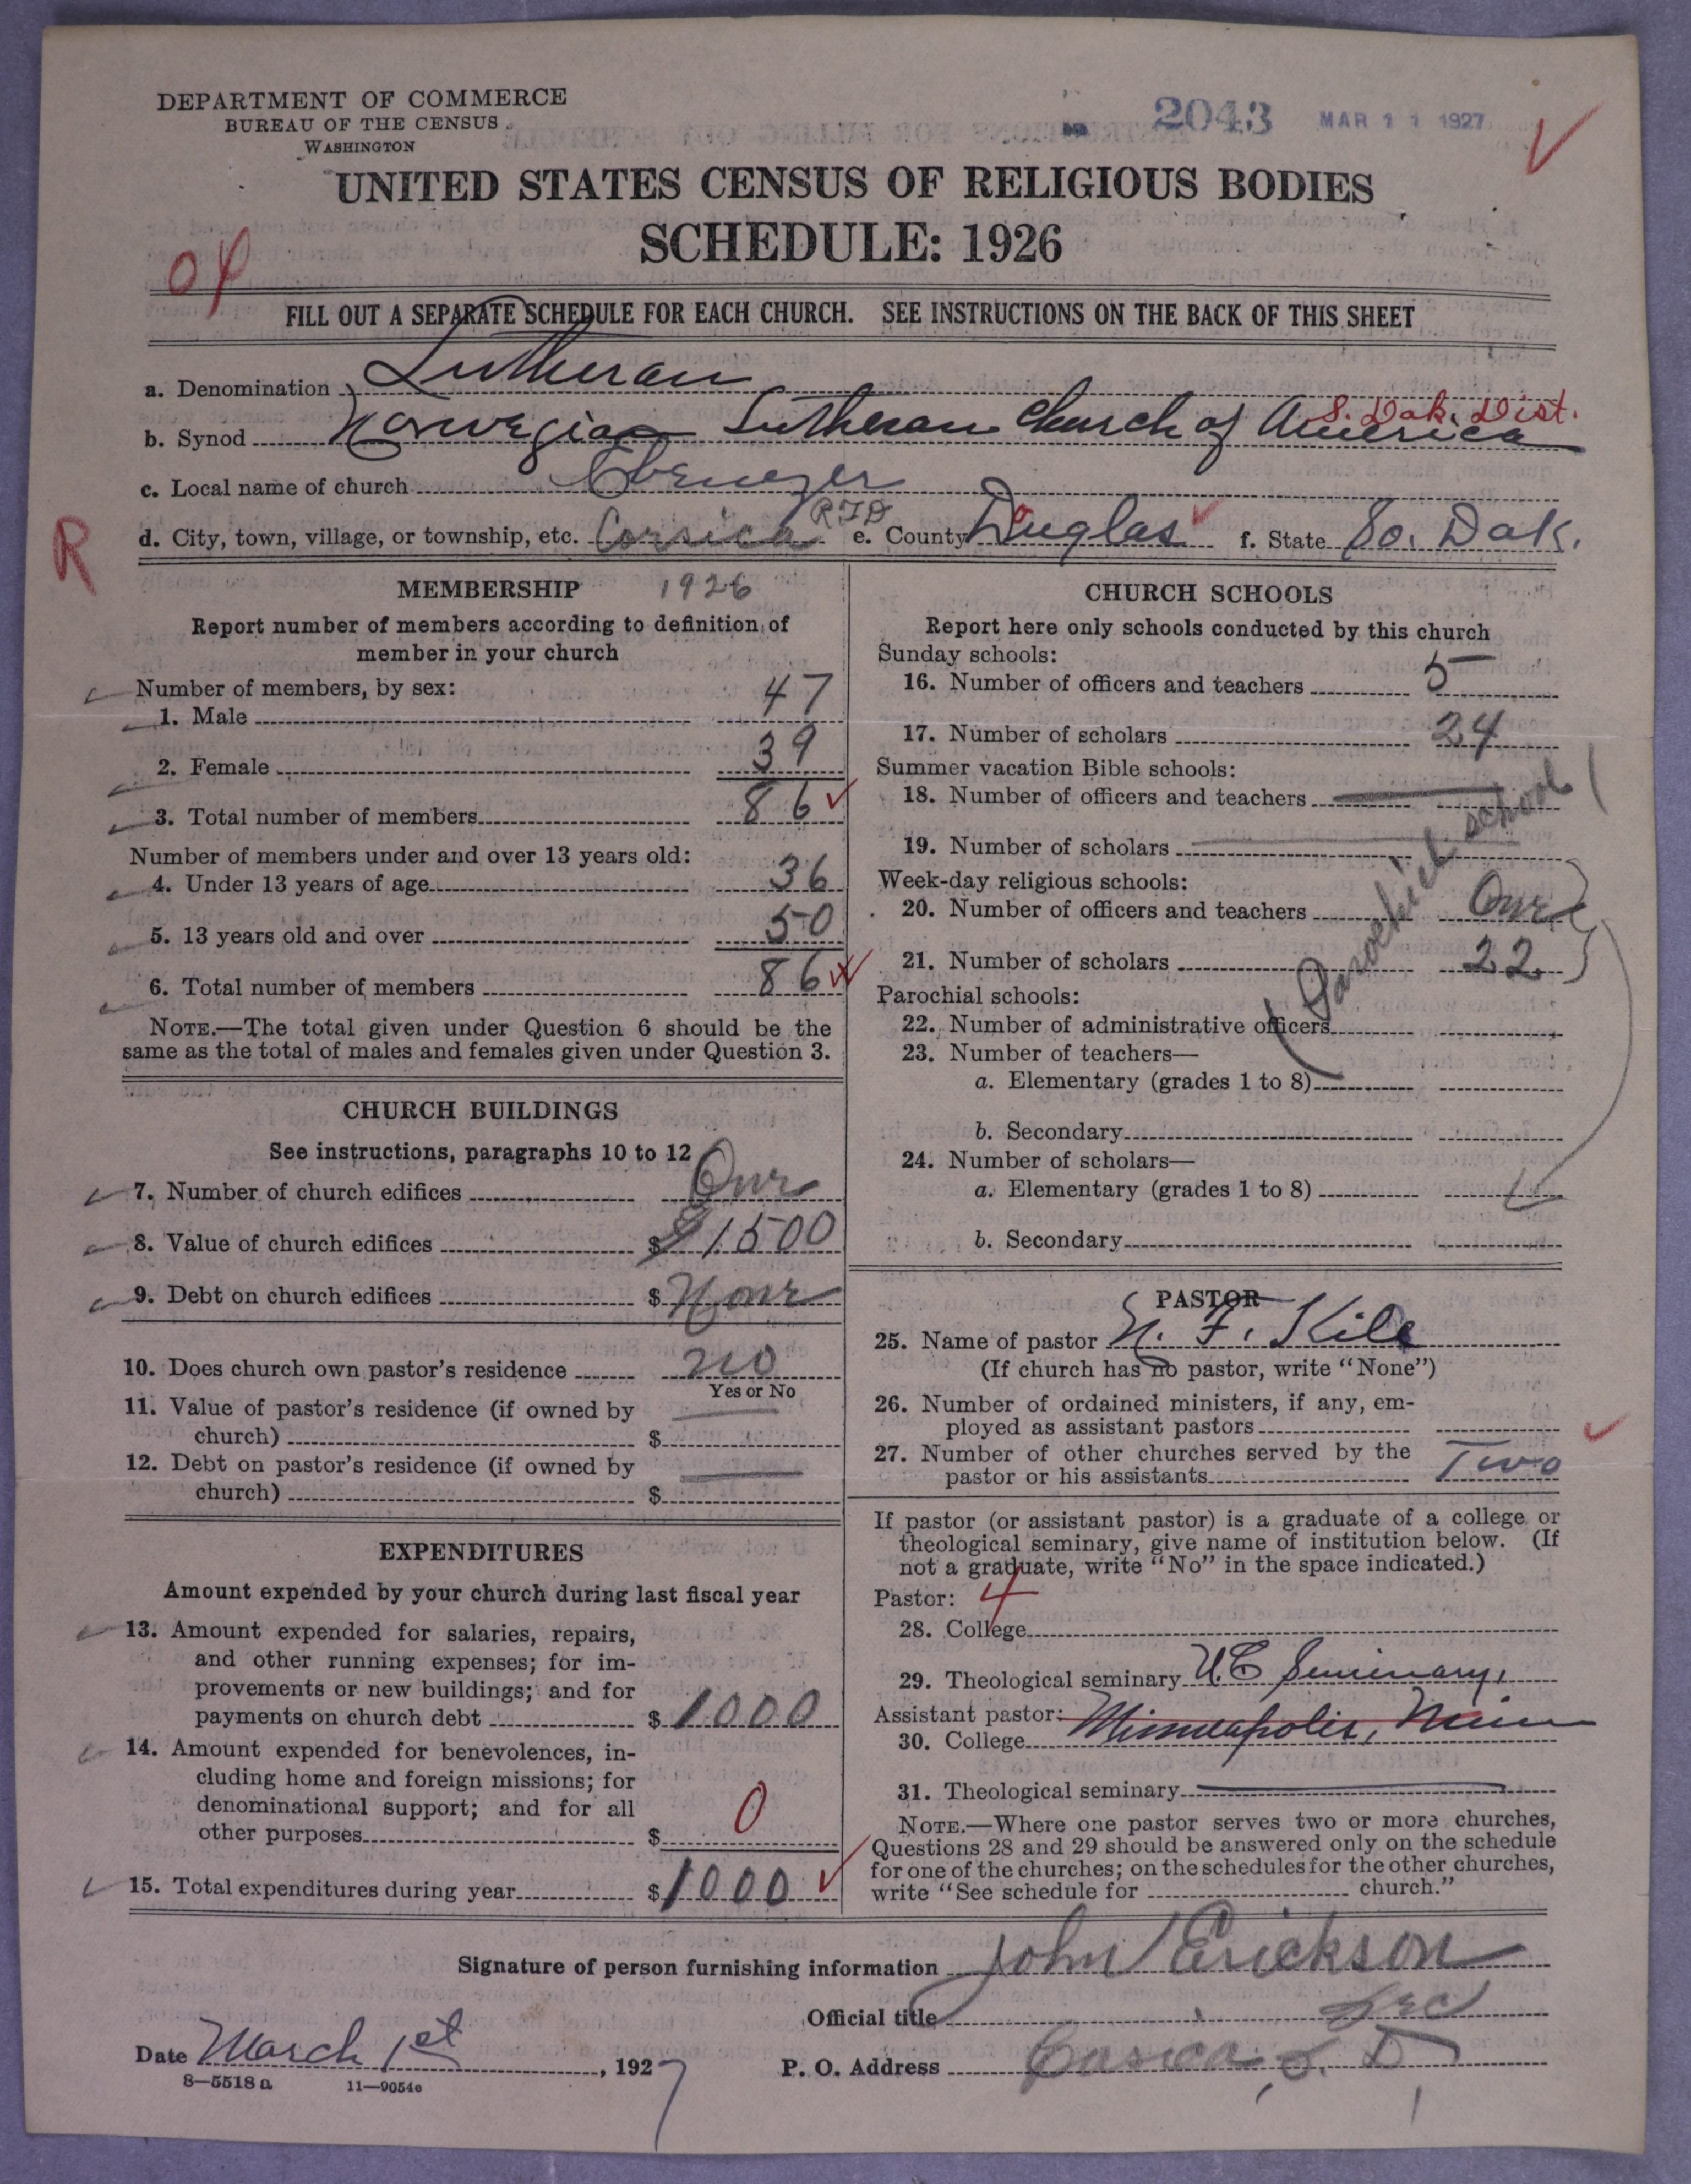 DEPARTMENT OF COMMERCE
BUREAU OF THE CENSUS
WASHINGTON
2043 MAR 11 1927
UNITED STATES CENSUS OF RELIGIOUS BODIES
SCHEDULE: 1926
04
FILL OUT A SEPARATE SCHEDULE FOR EACH CHURCH. SEE INSTRUCTIONS ON THE BACK OF THIS SHEET
a. Denomination Lutheran
S. Dak. Dist.
b. Synod Norwegian Lutheran Church of America
c. Local name of church Ebenezer
R d. City, town, village, or township, etc. Corsica RFD e. County Duglas f. State So. Dak.
MEMBERSHIP 1926
Report number of members according to definition of
member in your church
Number of members, by sex:
1. Male 47
2. Female 39
3. Total number of members 86
Number of members under and over 13 years old:
4. Under 13 years of age 36
5. 13 years old and over 50
6. Total number of members 86
NOTE.—The total given under Question 6 should be the
same as the total of males and females given under Question 3.
CHURCH BUILDINGS
See instructions, paragraphs 10 to 12
7. Number of church edifices One
8. Value of church edifices $ $1500
9. Debt on church edifices $ None
10. Does church own pastor's residence no
Yes or No
11. Value of pastor's residence (if owned by
church) $
12. Debt on pastor's residence (if owned by
church) $
EXPENDITURES
Amount expended by your church during last fiscal year
13. Amount expended for salaries, repairs,
and other running expenses; for im-
provements or new buildings; and for
payments on church debt $ 1000
14. Amount expended for benevolences, in-
cluding home and foreign missions; for
denominational support; and for all
other purposes $ 0
15. Total expenditures during year $ 1000
CHURCH SCHOOLS
Report here only schools conducted by this church
Sunday schools:
16. Number of officers and teachers 5
17. Number of scholars 24
Summer vacation Bible schools:
18. Number of officers and teachers
19. Number of scholars
Week-day religious schools:
20. Number of officers and teachers One
21. Number of scholars 22
Parochial school
Parochial schools:
22. Number of administrative officers
23. Number of teachers—
a. Elementary (grades 1 to 8)
b. Secondary
24. Number of scholars—
a. Elementary (grades 1 to 8)
b. Secondary
PASTOR
25. Name of pastor N. F. Kile
(If church has no pastor, write "None")
26. Number of ordained ministers, if any, em-
ployed as assistant pastors
27. Number of other churches served by the
pastor or his assistants Two
If pastor (or assistant pastor) is a graduate of a college or
theological seminary, give name of institution below. (If
not a graduate, write "No" in the space indicated.)
Pastor: 4
28. College
29. Theological seminary U.C Seminary,
Assistant pastor: Minneapolis, Minn
30. College
31. Theological seminary
NOTE.—Where one pastor serves two or more churches,
Questions 28 and 29 should be answered only on the schedule
for one of the churches; on the schedules for the other churches,
write "See schedule for church."
Signature of person furnishing information John Erickson
Official title Sec
Date March 1st, 1927 P. O. Address Corsica S. D
8—5518 a 11—9054e